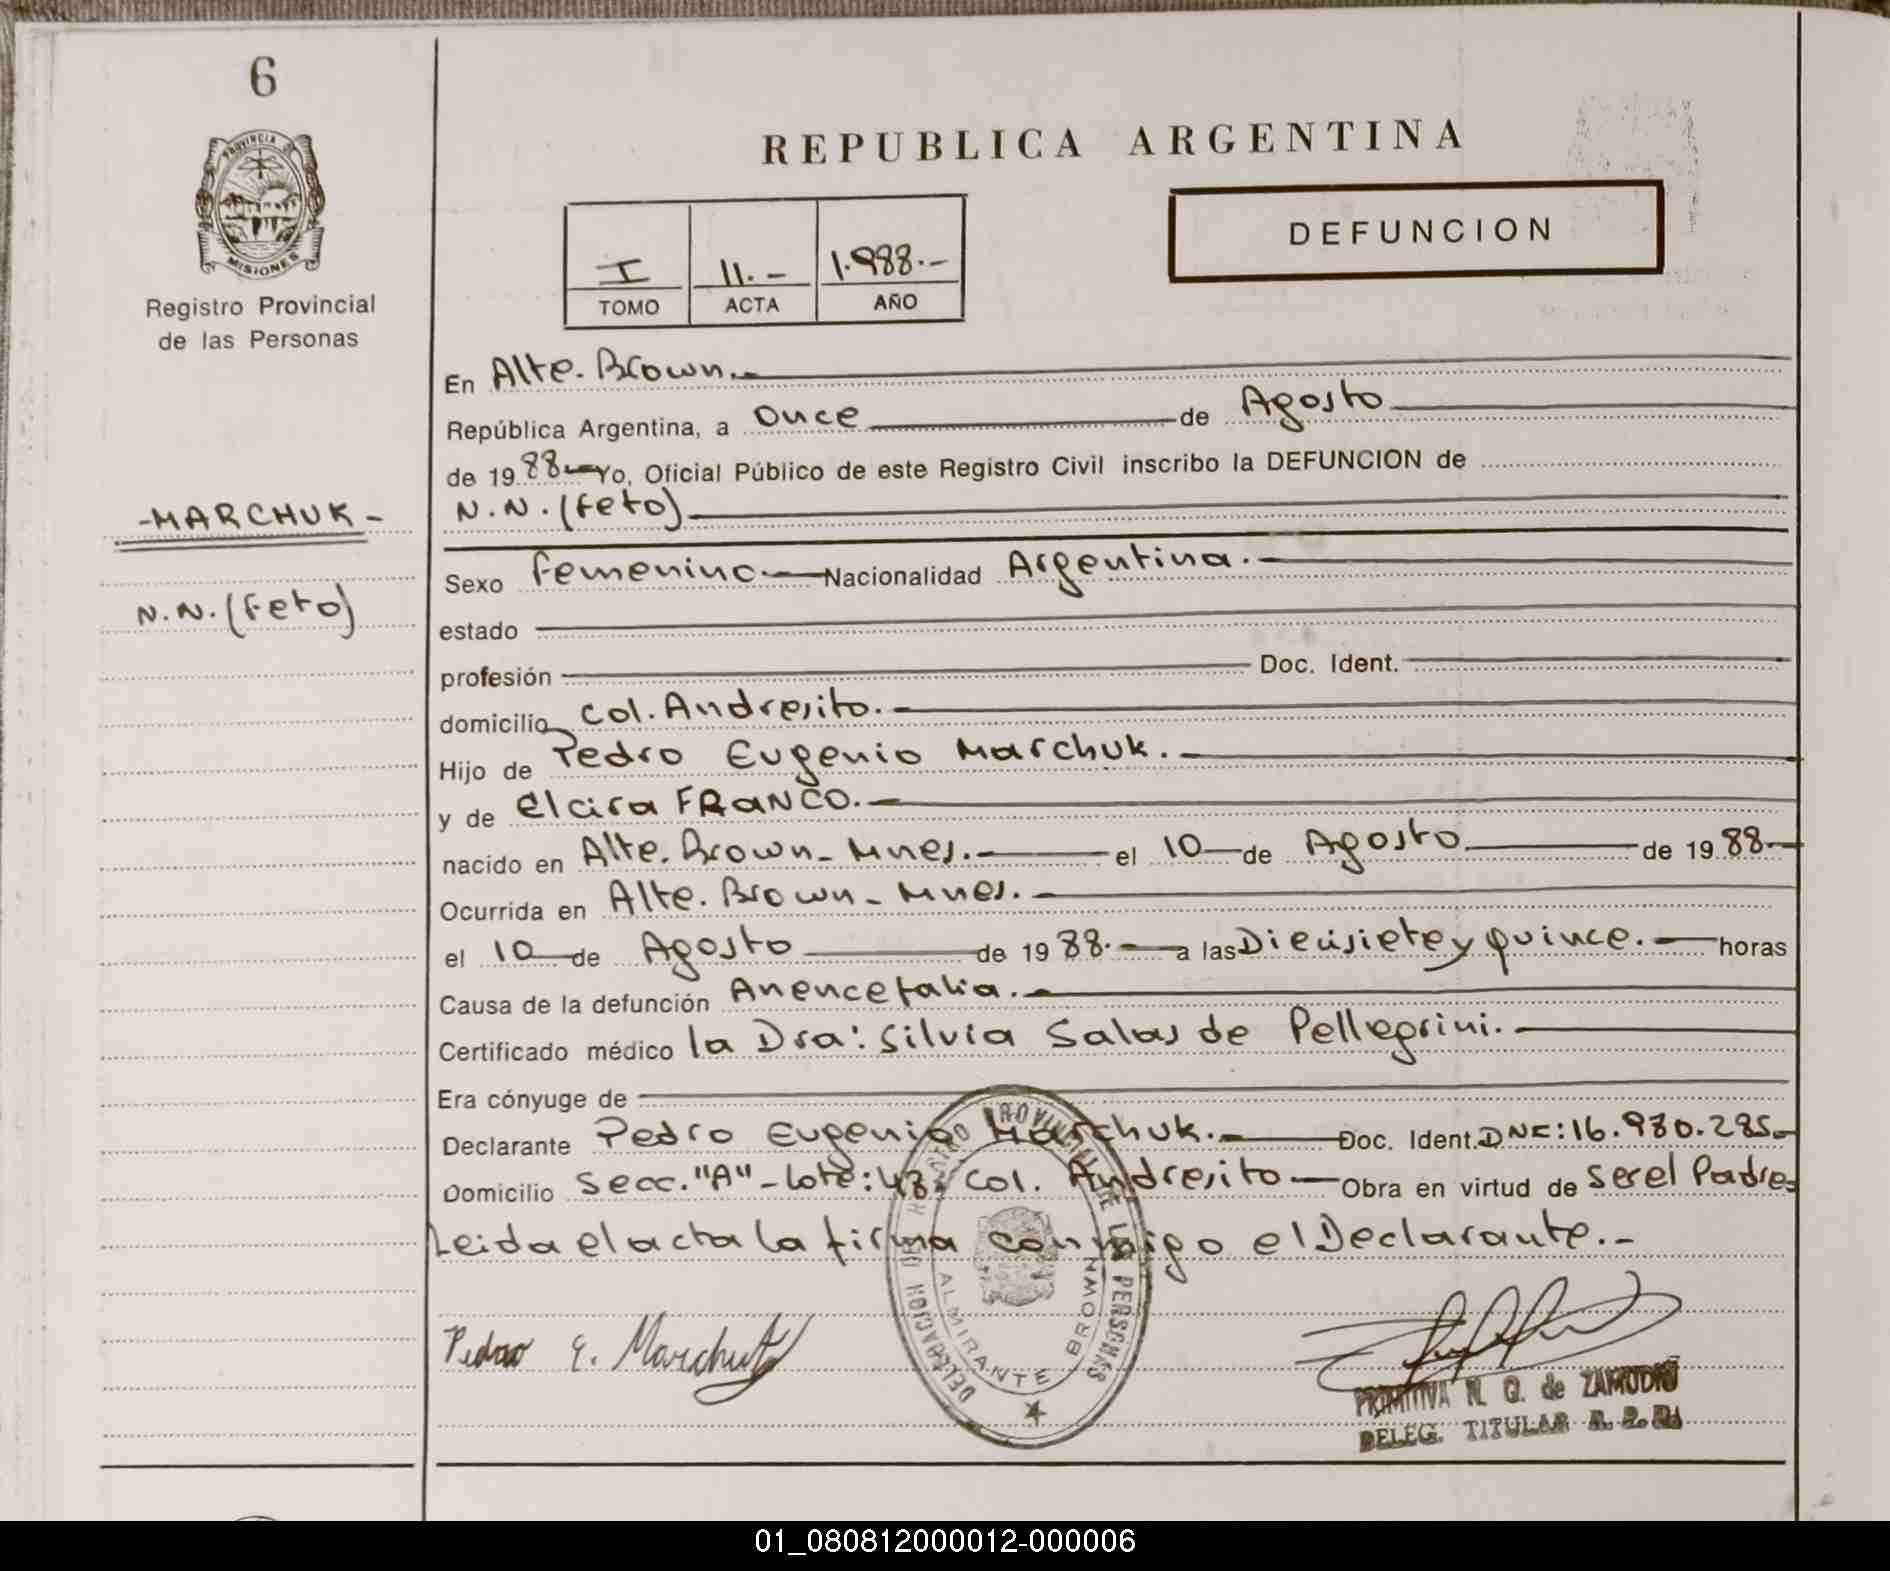 6
PROVINCIA D
MISIONES
Registro Provincial
de las Personas
-MARCHUK-
N.N. (Feto)
REPUBLICA ARGENTINA
I 11.- 1.988.-
TOMO ACTA AÑO
DEFUNCION
En Alte. Brown.-
República Argentina, a Once de Agosto
de 19 88 Yo, Oficial Público de este Registro Civil inscribo la DEFUNCION de
N.N. (Feto)
Sexo Femenino Nacionalidad Argentina.-
estado
profesión Doc. Ident.
domicilio Col. Andresito.-
Hijo de Pedro Eugenio Marchuk.-
y de Elcira FRANCO.-
nacido en Alte. Brown_ Mnes.- el 10 de Agosto de 19 88.-
Ocurrida en Alte. Brown_ Mnes.-
el 10 de Agosto de 19 88.- a las Diecisiete y quince.- horas
Causa de la defunción Anencefalia.-
Certificado médico la Dra: Silvia Salas de Pellegrini.-
Era cónyuge de
Declarante Pedro Eugenio Marchuk.- Doc. Ident. DNI: 16.980.285.-
Domicilio Secc. "A"- Lote: 48- Col. Andresito Obra en virtud de Ser el Padre-
Leida el acta la firma conmigo el Declarante.-
DELEGACION DEL REGISTRO PROVINCIAL DE LAS PERSONAS
ALMIRANTE BROWN
Pedro E. Marchuk
PRIMITIVA N. G. de ZAMUDIO
DELEG. TITULAR R. P. P.
01_080812000012-000006